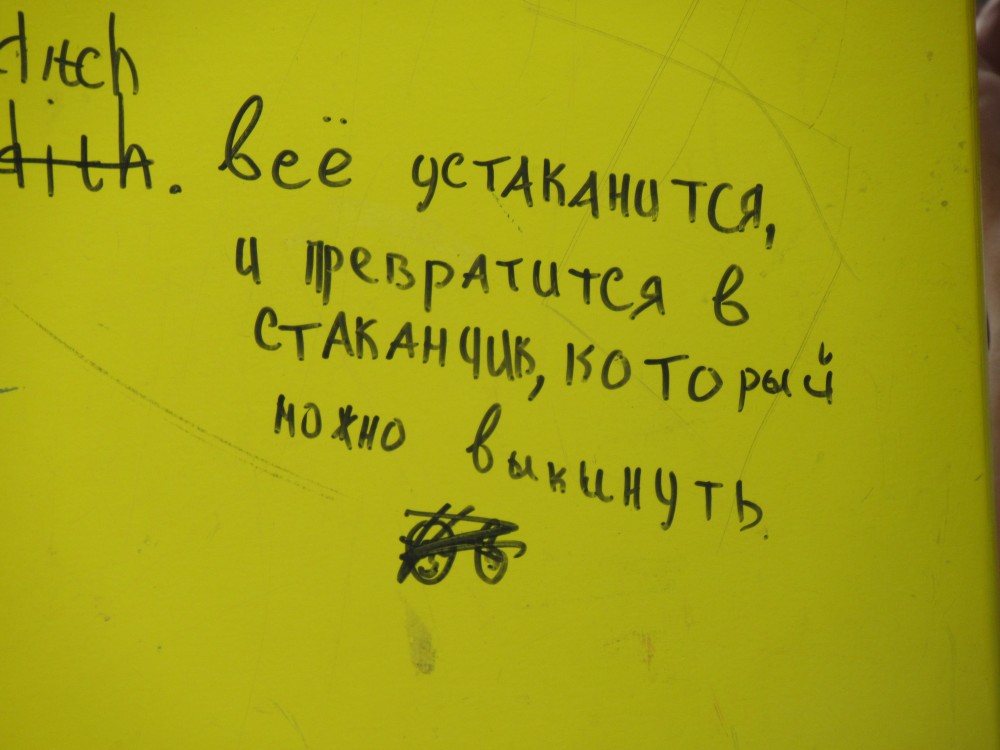 ditch
dith.
всё устаканится,
и превратится в
стаканчик, который
можно выкинуть